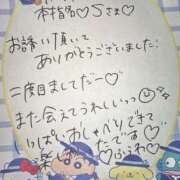 本指名♡Sさま♡
お誘い頂いて
ありがとうございました!
二度目ましてだー♡
また会えてうれしいっっ
いっぱいおしゃべりできて
楽し